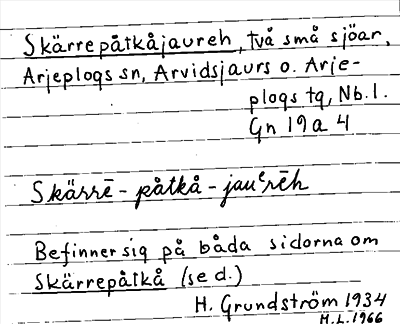 Skärrepåtkåjaureh, två små sjöar,
Arjeplogs sn, Arvidsjaurs o. Arje-
plogs tg, Nb.l.
Gn 19 a 4
Skärrē - påtkå - jauᵉrēh
Befinner sig på båda sidorna om
Skärrepåtkå (se d.)
H. Grundström 1934
M.L. 1966